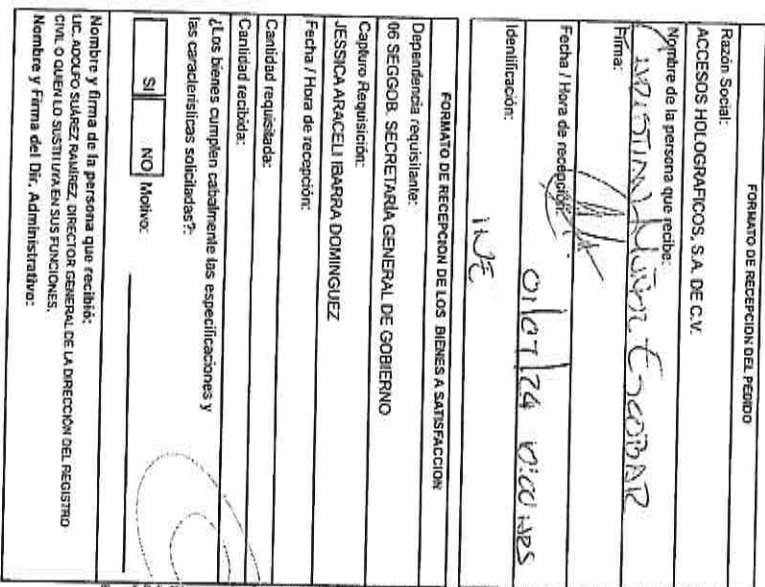 FORMATO DE RECEPCION DEL PEDIDO
Razón Social:
ACCESOS HOLOGRAFICOS, S.A. DE C.V.
Nombre de la persona que recibe:
ESCOBAR
Firma:
Fecha / Hora de recepción:
01/07/24 10:00 HRS
Identificación:
INE
FORMATO DE RECEPCION DE LOS BIENES A SATISFACCION
Dependencia requisitante:
06 SEGGOB. SECRETARÍA GENERAL DE GOBIERNO
Capturo Requisición:
JESSICA ARACELI IBARRA DOMINGUEZ
Fecha / Hora de recepción:
Cantidad requisitada:
Cantidad recibida:
¿Los bienes cumplen cabalmente las especificaciones y
las características solicitadas?:
SI NO Motivo:
Nombre y firma de la persona que recibió:
LIC. ADOLFO SUÁREZ RAMÍREZ, DIRECTOR GENERAL DE LA DIRECCIÓN DEL REGISTRO
CIVIL O QUIEN LO SUSTITUYA EN SUS FUNCIONES.
Nombre y Firma del Dir. Administrativo: